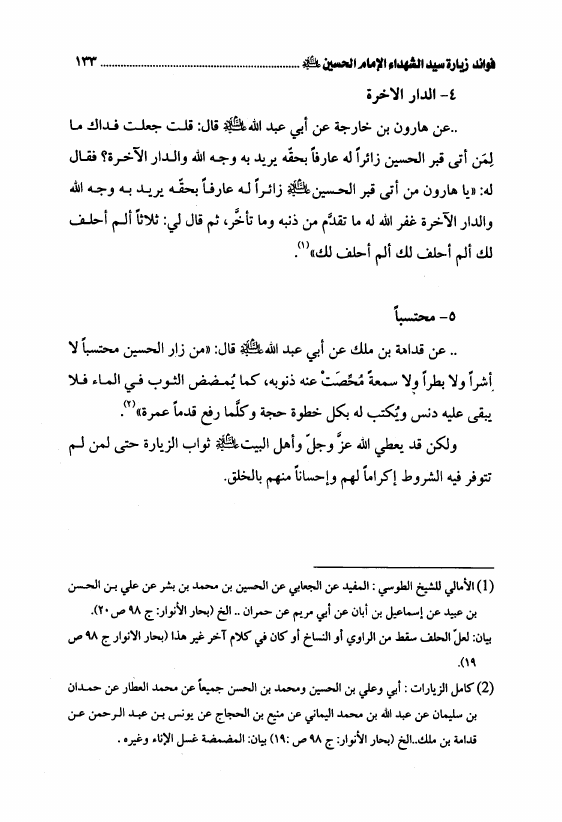 فوائد زيارة سيد الشهداء الإمام الحسين عليه السلام ........................................ ١٣٣
٤- الدار الاخرة
..عن هارون بن خارجة عن أبي عبد الله عليه السلام قال: قلت جعلت فداك ما
لِمَن أتى قبر الحسين زائراً له عارفاً بحقّه يريد به وجه الله والدار الآخرة؟ فقال
له: «يا هارون من أتى قبر الحسين عليه السلام زائراً له عارفاً بحقّه يريد به وجه الله
والدار الآخرة غفر الله له ما تقدَّم من ذنبه وما تأخَّر، ثم قال لي: ثلاثاً ألم أحلف
لك ألم أحلف لك ألم أحلف لك»(١).
٥- محتسباً
.. عن قدامة بن ملك عن أبي عبد الله عليه السلام قال: «من زار الحسين محتسباً لا
أشراً ولا بطراً ولا سمعةً مُحِّصَتْ عنه ذنوبه، كما يُمضمض الثوب في الماء فلا
يبقى عليه دنس ويُكتب له بكل خطوة حجة وكلَّما رفع قدماً عمرة»(٢).
ولكن قد يعطي الله عزَّ وجلّ وأهل البيت عليهم السلام ثواب الزيارة حتى لمن لم
تتوفر فيه الشروط إكراماً لهم وإحساناً منهم بالخلق.
(1) الأمالي للشيخ الطوسي : المفيد عن الجعابي عن الحسين بن محمد بن بشر عن علي بن الحسن
بن عبيد عن إسماعيل بن أبان عن أبي مريم عن حمران .. الخ (بحار الأنوار: ج ٩٨ ص ٢٠).
بيان: لعلّ الحلف سقط من الراوي أو النساخ أو كان في كلام آخر غير هذا (بحار الانوار ج ٩٨ ص
١٩).
(2) كامل الزيارات : أبي وعلي بن الحسين ومحمد بن الحسن جميعاً عن محمد العطار عن حمدان
بن سليمان عن عبد الله بن محمد اليماني عن منيع بن الحجاج عن يونس بن عبد الرحمن عن
قدامة بن ملك..الخ (بحار الأنوار: ج ٩٨ ص :١٩) بيان: المضمضة غسل الإناء وغيره .